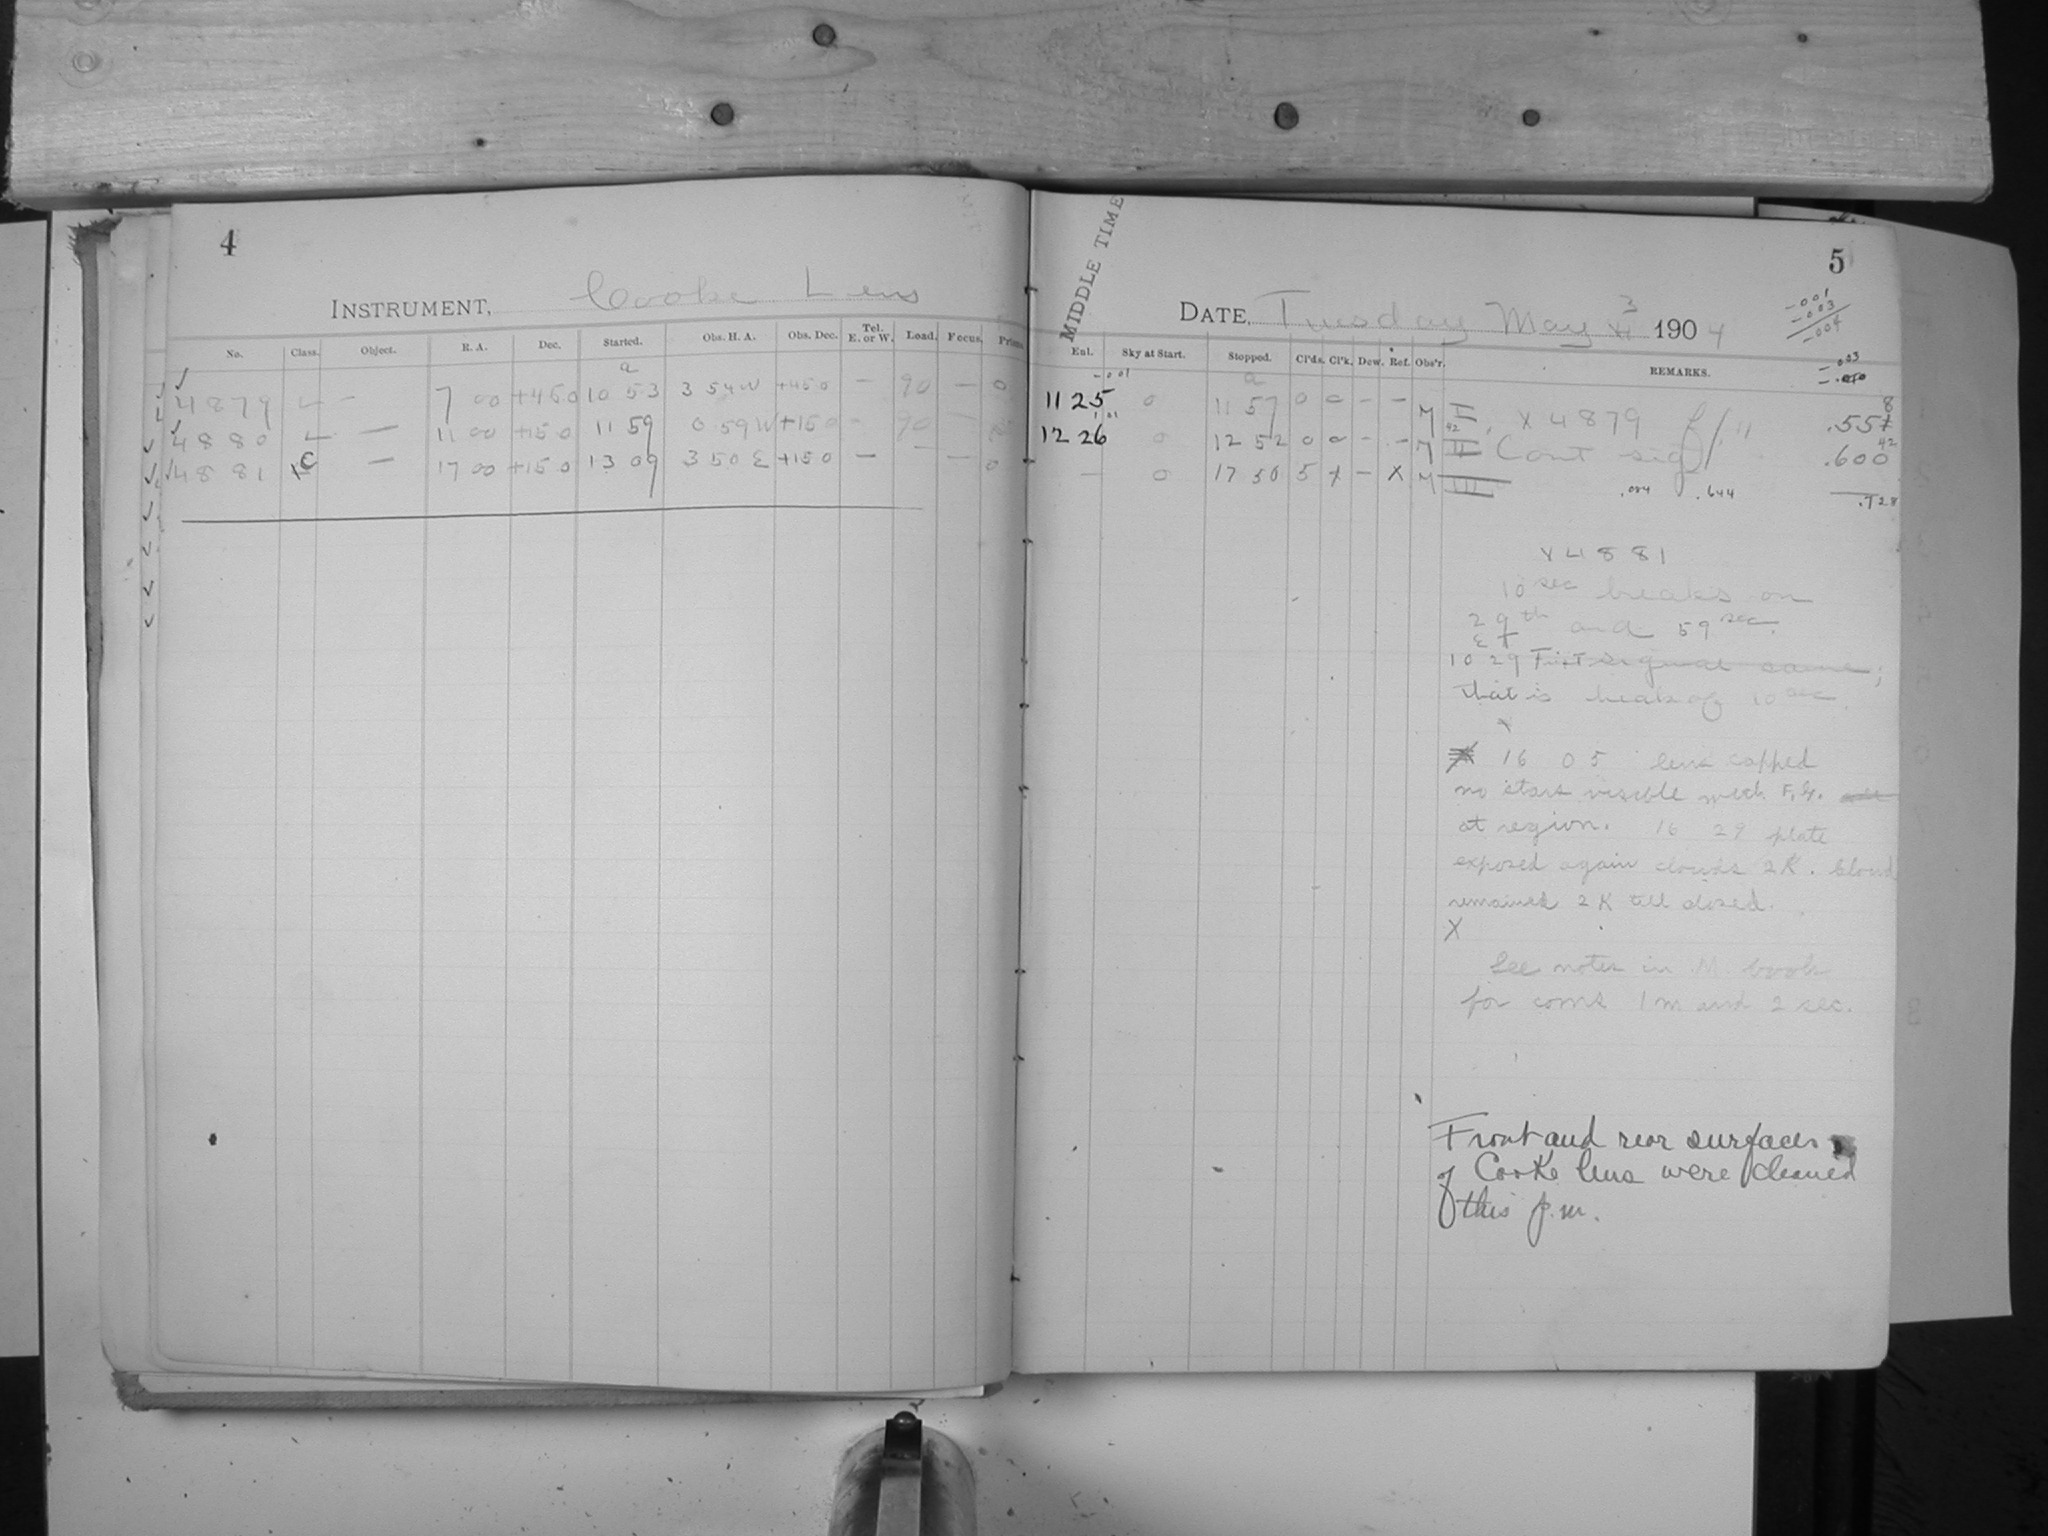 4
INSTRUMENT, Cooke Lens
No. Class. Object. R. A. Dec. Started. Obs. H. A. Obs. Dec. Tel. E. or W. Load. Focus. Prism
a
4879 L — 7 00 +45 0 10 53 3 54 W +45 0 — 90 — 0
4880 L — 11 00 +15 0 11 59 0 59 W +15 0 - 90 —
4881 C — 17 00 +15 0 13 09 3 50 E +15 0 — — — 0
MIDDLE TIME
5
DATE, Tuesday May 3 1904
-001
-003
-004
Exl. Sky at Start. Stopped. Cl'ds. Cl'k. Dew. Ref. Obs'r. REMARKS.
-.003
-001
a
11 25 0 11 57 0 0 - - M I, X 4879 .557 8
12 26 0 12 52 0 0 - - M II Cont sig .600 42
— 0 17 50 5 X — X M III .004 .644 .728
X 4881
10 sec breaks on
29th and 59 sec.
10 29 First signal same;
that is break of 10 sec.
16 05 lens capped
no stars visible with F.G.
at region. 16 29 plate
exposed again clouds 2K. Cloud
remained 2 K till closed.
X
See notes in M book
for corns 1 m and 2 sec.
Front and rear surfaces
of Cooke lens were cleaned
this p.m.